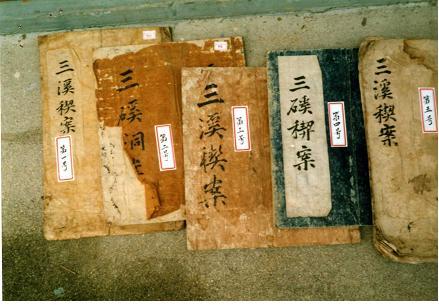 三溪稧案
第一号
三磎洞
第二号
三溪稧案
第三号
三磎稧案
第四号
三溪稧案
第五号